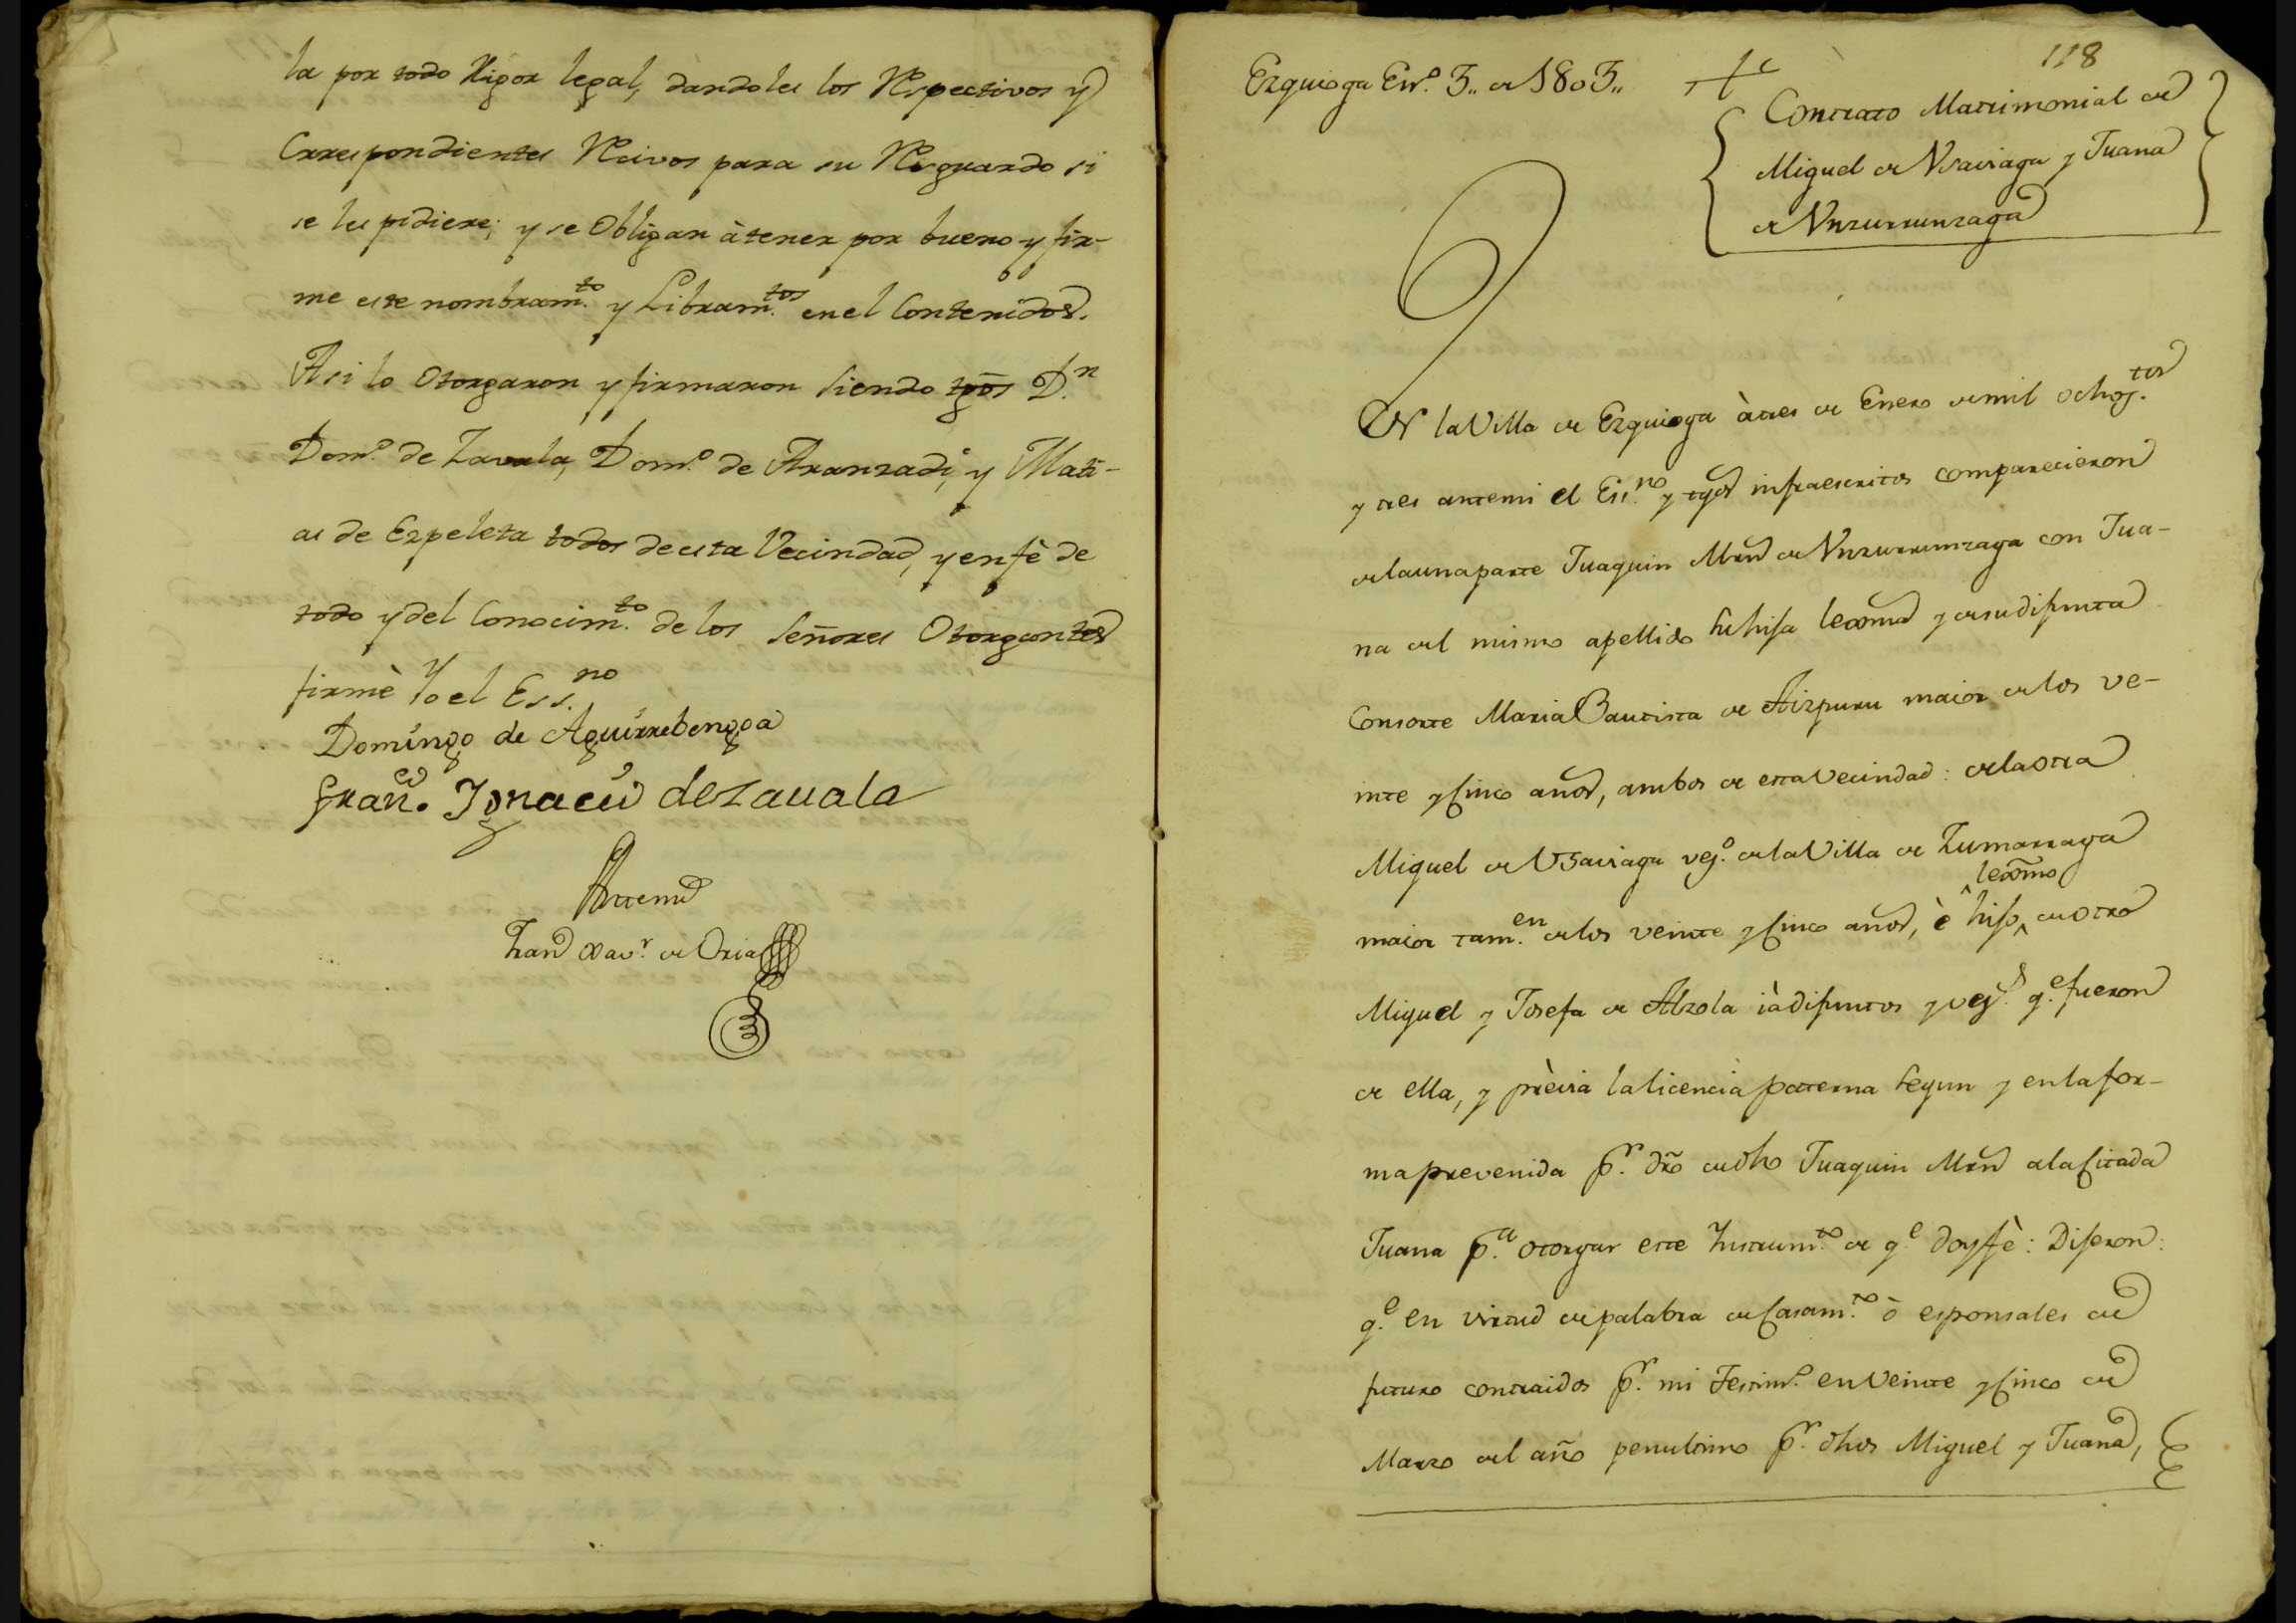 la por todo Rigor legal, dandoles los Respectivos y
Correspondientes Recivos para su Resguardo si
se les pidiere; y se Obligan à tener por bueno y fir-
me este nombram.to y Libram.tos en el Contenidos.
Asi lo Otorgaron y firmaron siendo tgōs D.n
Dom.o de Zavala, Dom.o de Aranzadi, y Mati-
as de Ezpeleta todos de esta Vecindad, y en fè de
todo y del Conocim.to de los Señores Otorgantes
firmè Yo el Ess.no
Domingo de Aguirrebengoa
Fran.co Ignacio de Zavala
Antemi
Xav.r de Oria
118
Ezquioga En.o 3,, de 1803,,
Contrato Matrimonial de
Miguel de Usaviaga y Juana
de Unzurrunzaga
En la Villa de Ezquioga à tres de Enero de mil ochoz.tos
y tres antemi el Ess.no y tgos infraescritos comparecieron
de la una parte Juaquin Mrn de Unzurrunzaga con Jua-
na del mismo apellido su hija lexma y de su difunta
Consorte Maria Bautista de Aizpuru maior de los ve-
inte y Cinco años, ambos de esta Vecindad: de la otra
Miguel de Usaviaga vez.o de la Villa de Zumarraga
maior tam.en de los veinte y Cinco años, è hijo lexmo de otro
Miguel y Josefa de Alzola ià difuntos y vez.s q.e fueron
de ella, y prèvia la licencia paterna segun y en la for-
ma prevenida p.r dro de dho Juaquin Mrn a la Citada
Juana p.a otorgar este Instrum.to de q.e doy fè: Dijeron:
q.e en virtud de palabra de Casam.to ò esponsales de
futuro contraidos p.r mi Testim.o en Veinte y Cinco de
Marzo del año penultimo p.r dhos Miguel y Juana,